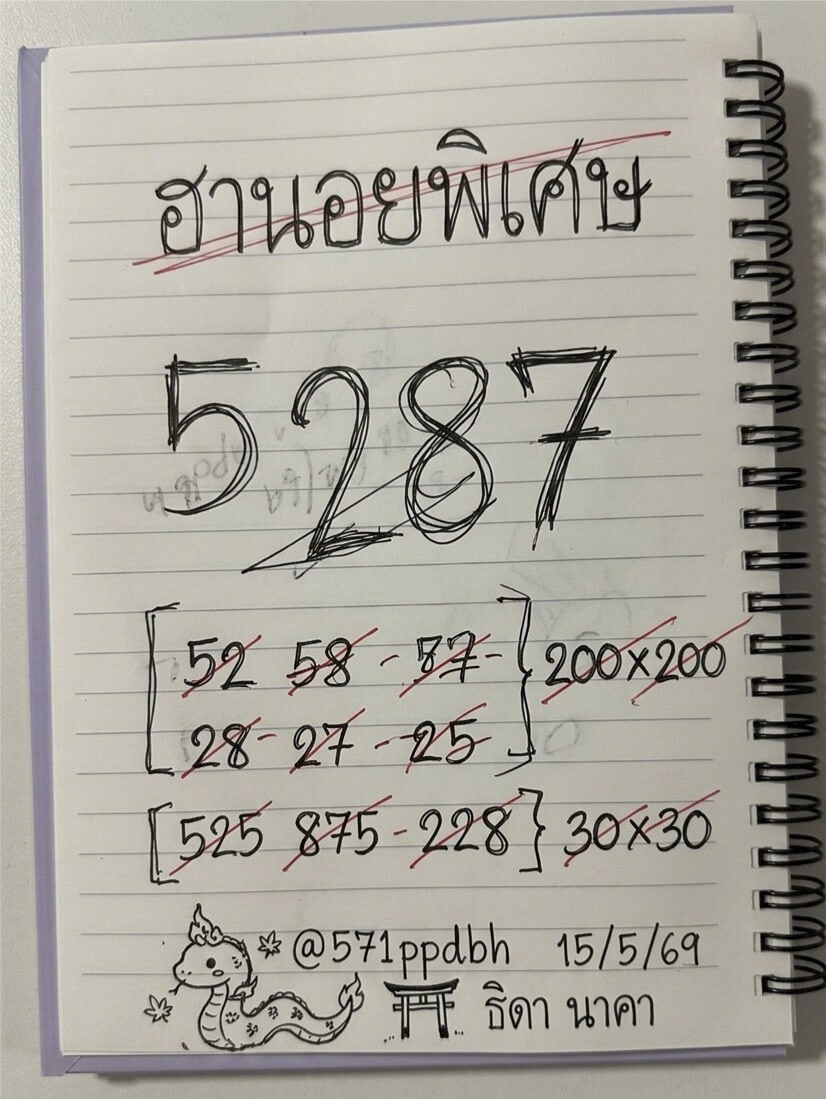 ฮานอยพิเศษ
5287
[52 58 - 57 - } 200x200
28 - 27 - 25]
[525 875 - 228} 30x30
@571ppdbh 15/5/69
ธิดา นาคา